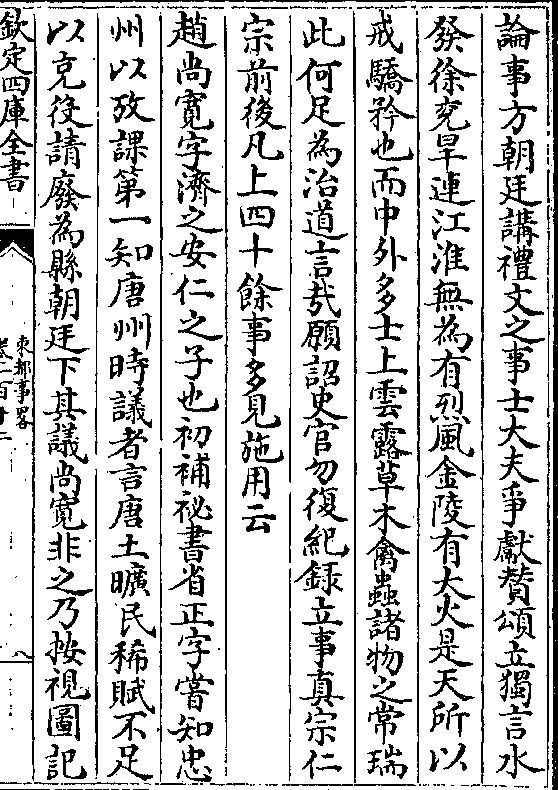 論事方朝廷講禮文之事士大夫爭獻賛頌立獨言水
發徐兖旱連江淮無為有烈風金陵有大火是天所以
戒驕矜也而中外多士上雲露草木禽蟲諸物之常瑞
此何足為治道言㢤願詔史官勿復紀録立事真宗仁
宗前後凡上四十餘事多見施用云
趙尚寛字濟之安仁之子也初補祕書省正字嘗知忠
州以攷課第一知唐州時議者言唐土曠民稀賦不足
以充役請廢為縣朝廷下其議尚寛非之乃按視圖記
欽定四庫全書
東都事畧
卷一百十二
八